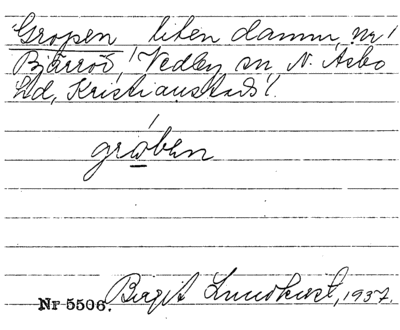 Gropen liten damm, nr
Bjärröd, Vedby sn N. Åsbo
hd, Kristianstads l.
grøben
Nr 5506. Birgit Lundkvist, 1937.